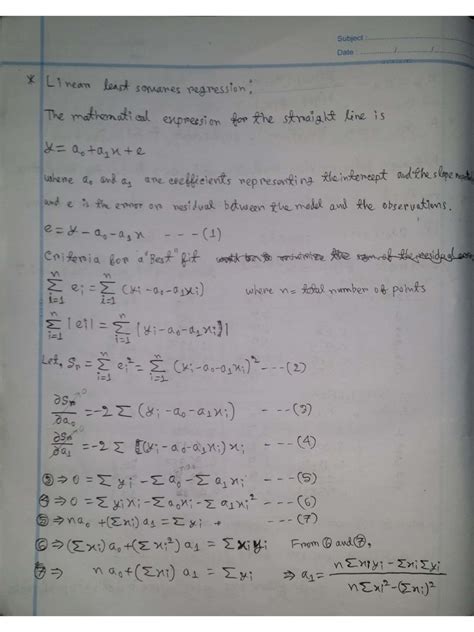 Subject :
Date : ........../........../..........
* Linear least squares regression:
The mathematical expression for the straight line is
y = a₀+a₁x+e
where a₀ and a₁ are coefficients representing the intercept and the slope
and e is the error or residual between the model and the observations.
e = y - a₀-a₁x --- (1)
Criteria for a "Best" fit
n∑i=1 ei = n∑i=1 (yi -a₀-a₁xi) where n= total number of points
n∑i=1 |ei| = n∑i=1 |yi -a₀-a₁xi|
Let, Sr = n∑i=1 ei² = n∑i=1 (yi-a₀-a₁xi)² --- (2)
∂Sr/∂a₀ = -2 ∑ (yi -a₀-a₁xi) --- (3)
∂Sr/∂a₁ = -2 ∑ [(yi -a₀-a₁xi) xi --- (4)
③ ⇒ 0 = ∑ yi - ∑ a₀ - ∑ a₁xi --- (5)
④ ⇒ 0 = ∑ yixi - ∑ a₀xi - ∑ a₁xi² --- (6)
⑤ ⇒ na₀ + (∑xi) a₁ = ∑ yi --- (7)
⑥ ⇒ (∑xi) a₀ + (∑xi²) a₁ = ∑ xiyi From ⑥ and ⑦,
⑦ ⇒ n a₀ + (∑xi) a₁ = ∑yi ⇒ a₁ = n∑xiyi - ∑xi∑yi / n∑xi² - (∑xi)²